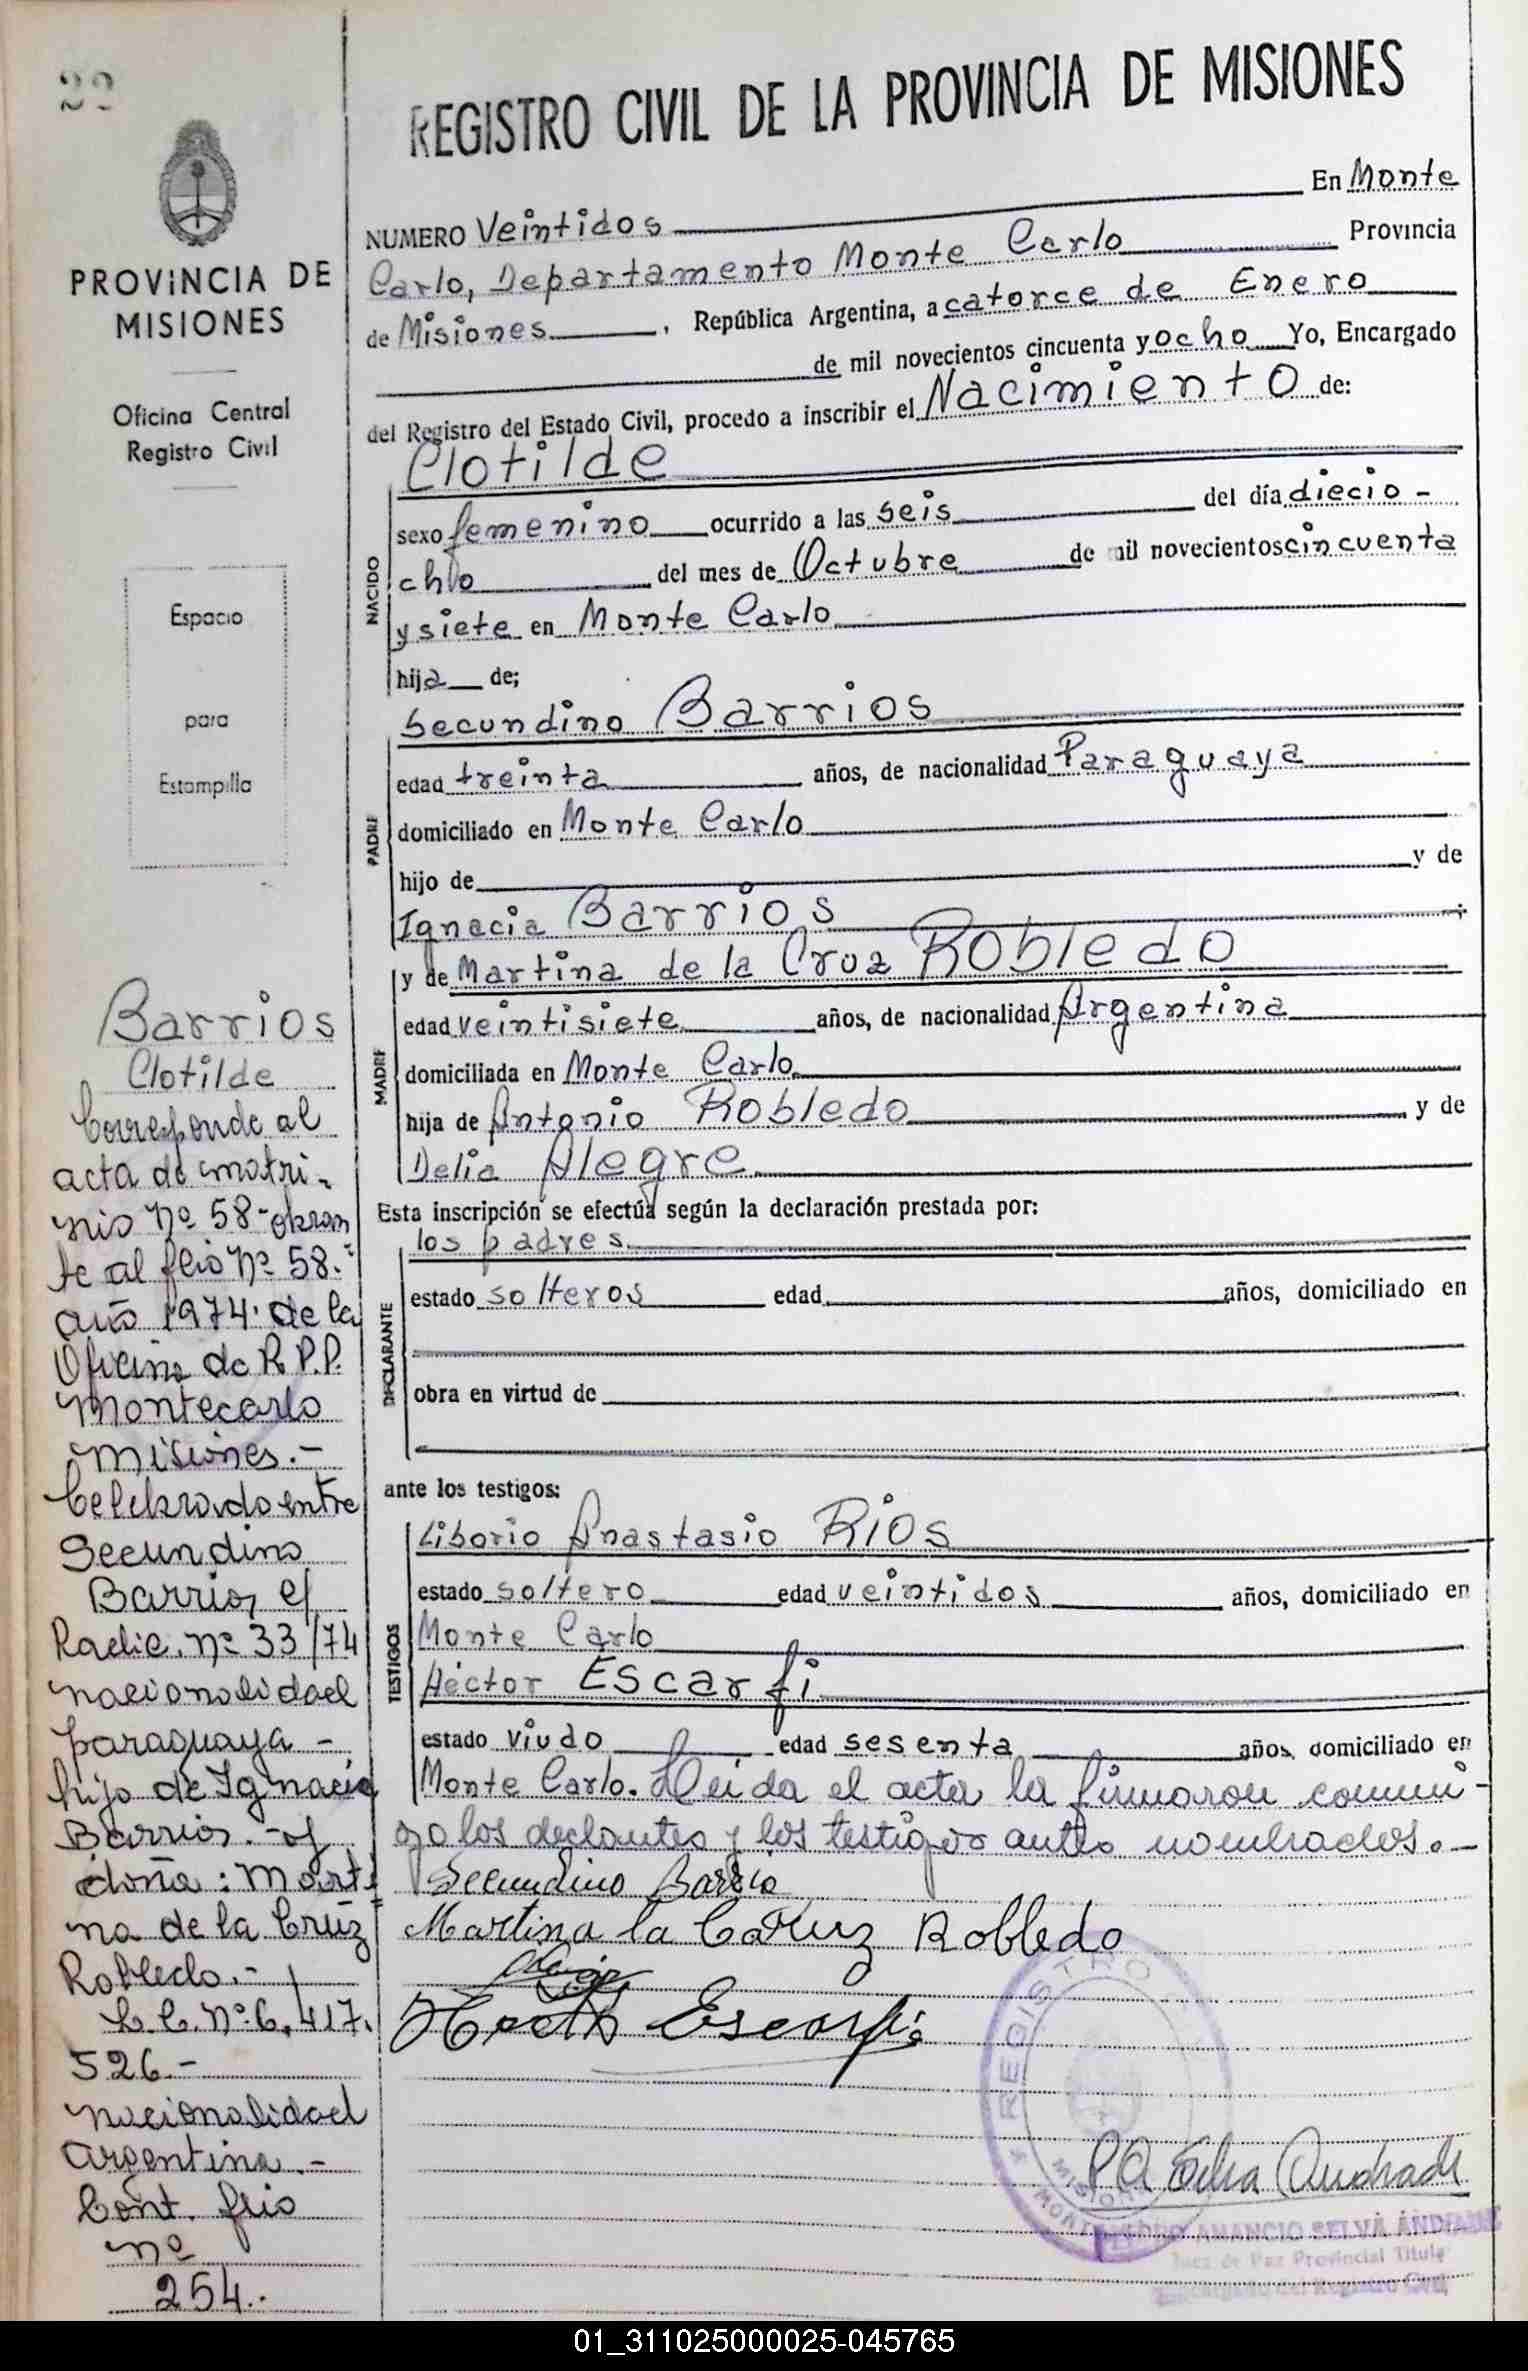 22
REGISTRO CIVIL DE LA PROVINCIA DE MISIONES
PROVINCIA DE
MISIONES
Oficina Central
Registro Civil
Espacio
para
Estampilla
NUMERO Veintidos En Monte
Carlo, Departamento Monte Carlo Provincia
de Misiones, República Argentina, a catorce de Enero
de mil novecientos cincuenta y ocho Yo, Encargado
del Registro del Estado Civil, procedo a inscribir el Nacimiento de:
Clotilde
NACIDO
sexo femenino ocurrido a las seis del día diecio-
cho del mes de Octubre de mil novecientos cincuenta
y siete en Monte Carlo
hija de;
Secundino Barrios
PADRE
edad treinta años, de nacionalidad Paraguaya
domiciliado en Monte Carlo
hijo de y de
Ignacia Barrios ;
y de Martina de la Cruz Robledo
MADRE
edad veintisiete años, de nacionalidad Argentina
domiciliada en Monte Carlo
hija de Antonio Robledo y de
Delia Alegre
Esta inscripción se efectúa según la declaración prestada por:
los padres
DECLARANTE
estado solteros edad años, domiciliado en
obra en virtud de
ante los testigos:
TESTIGOS
Liborio Anastasio Rios
estado soltero edad veintidos años, domiciliado en
Monte Carlo
Héctor Escarfi
estado viudo edad sesenta años, domiciliado en
Monte Carlo. Leida el acta la firmaron conmi-
go los declantes y los testigos antes nombrados.-
Secundino Barrio
Martina la Caruz Robledo
Hector Escarfi
Barrios
Clotilde
Corresponde al
acta de matri-
nio Nº 58-obran
te al flio Nº 58.-
año 1974. de la
Oficina de R.P.P.
Montecarlo
Misiones.-
Celebrado entre
Secundino
Barrios c/
Radic. Nº 33/74
nacionalidad
paraguaya-
hijo de Ignacia
Barrios.- y
doña: Marti
na de la Cruz
Robledo.-
L.C. Nº 6.417.
526.-
nacionalidad
argentina.-
Cont. flio
nº
254.-
REGISTRO
MISIONES
P A Selva Andrade
PEDRO AMANCIO SELVA ANDRADE
Juez de Paz Provincial Titular
Encargado del Registro Civil
01_311025000025-045765